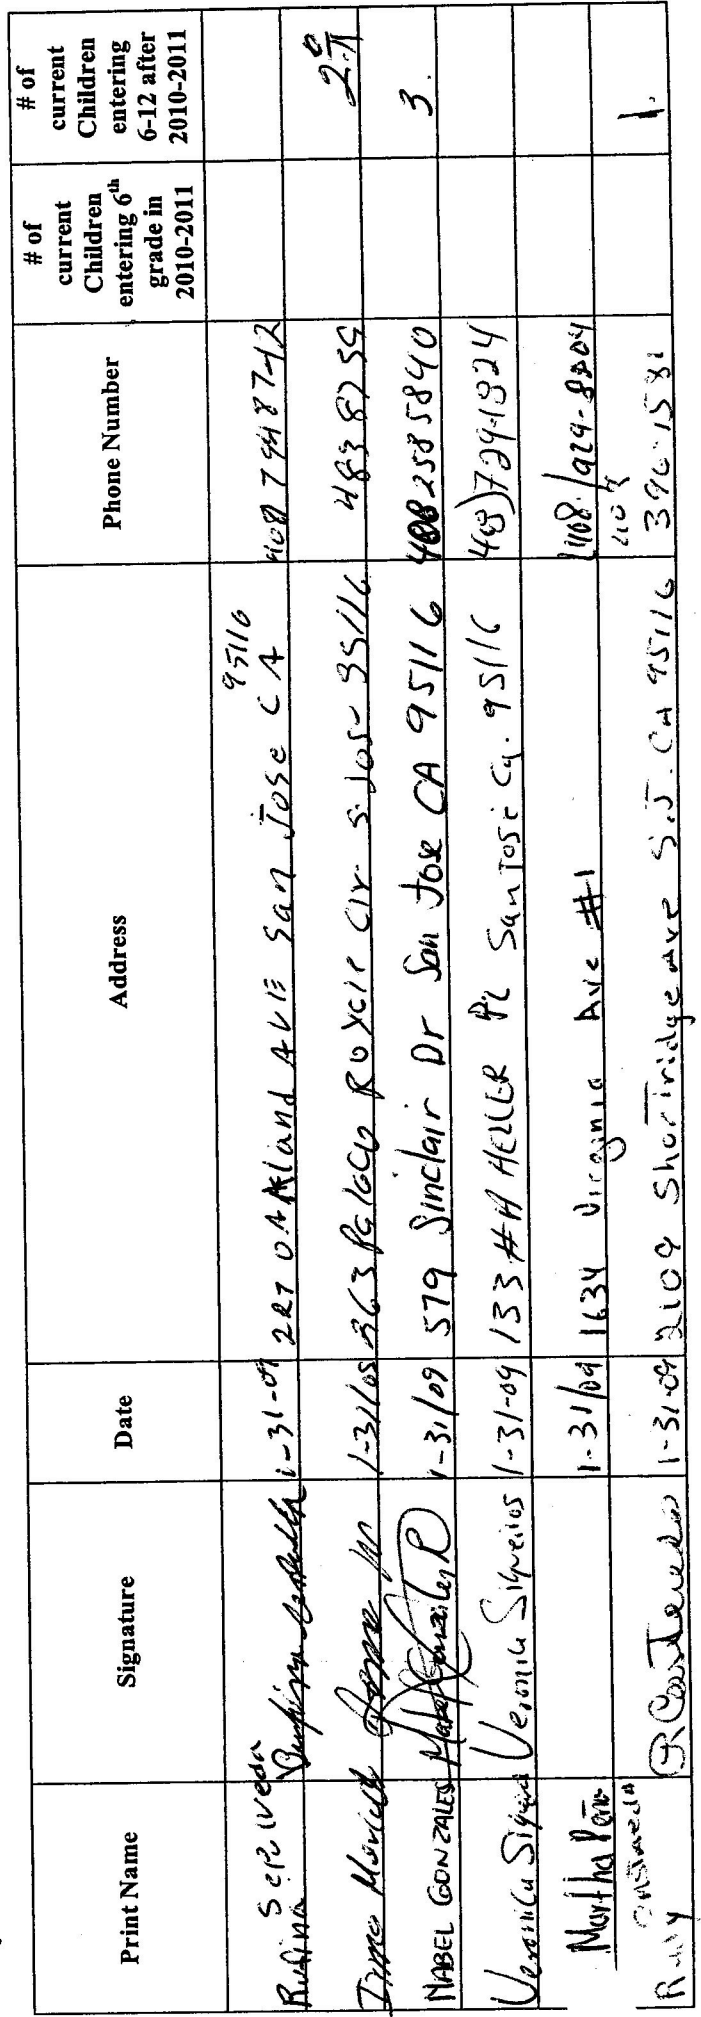 Print Name Signature Date Address Phone Number # of current Children entering 6th grade in 2010-2011 # of current Children entering 6-12 after 2010-2011
Rufina Sepulveda 1-31-09 227 OAKland AVE San Jose CA 95116 408 794 8742
1-31/09 S. Jose 95116 483 8759 2
MABEL GONZALES Mabel Gonzalez R 1-31/09 579 Sinclair Dr San Jose CA 95116 408 2585840 3.
Veronica Veronica Siqueiros 1-31-09 133 #A HELLER PL San Jose Ca. 95116 408)729-1824
Martha Peña 1-31/09 1634 Virginia Ave #1
Rudy R Castaneda 1-31-09 2109 Shortridge Ave S.J. CA 95116 408 396-1581 1.